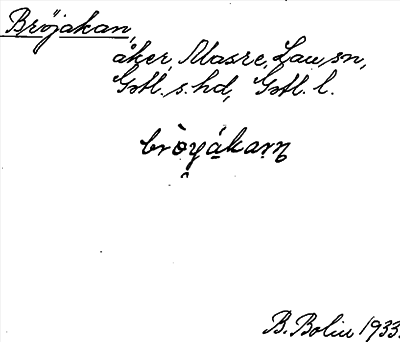 Bröjakan,
åker, Masre, Lau sn,
Gotl. s. hd, Gotl. l.
bròyákaṃ
B. Bolin 1933.